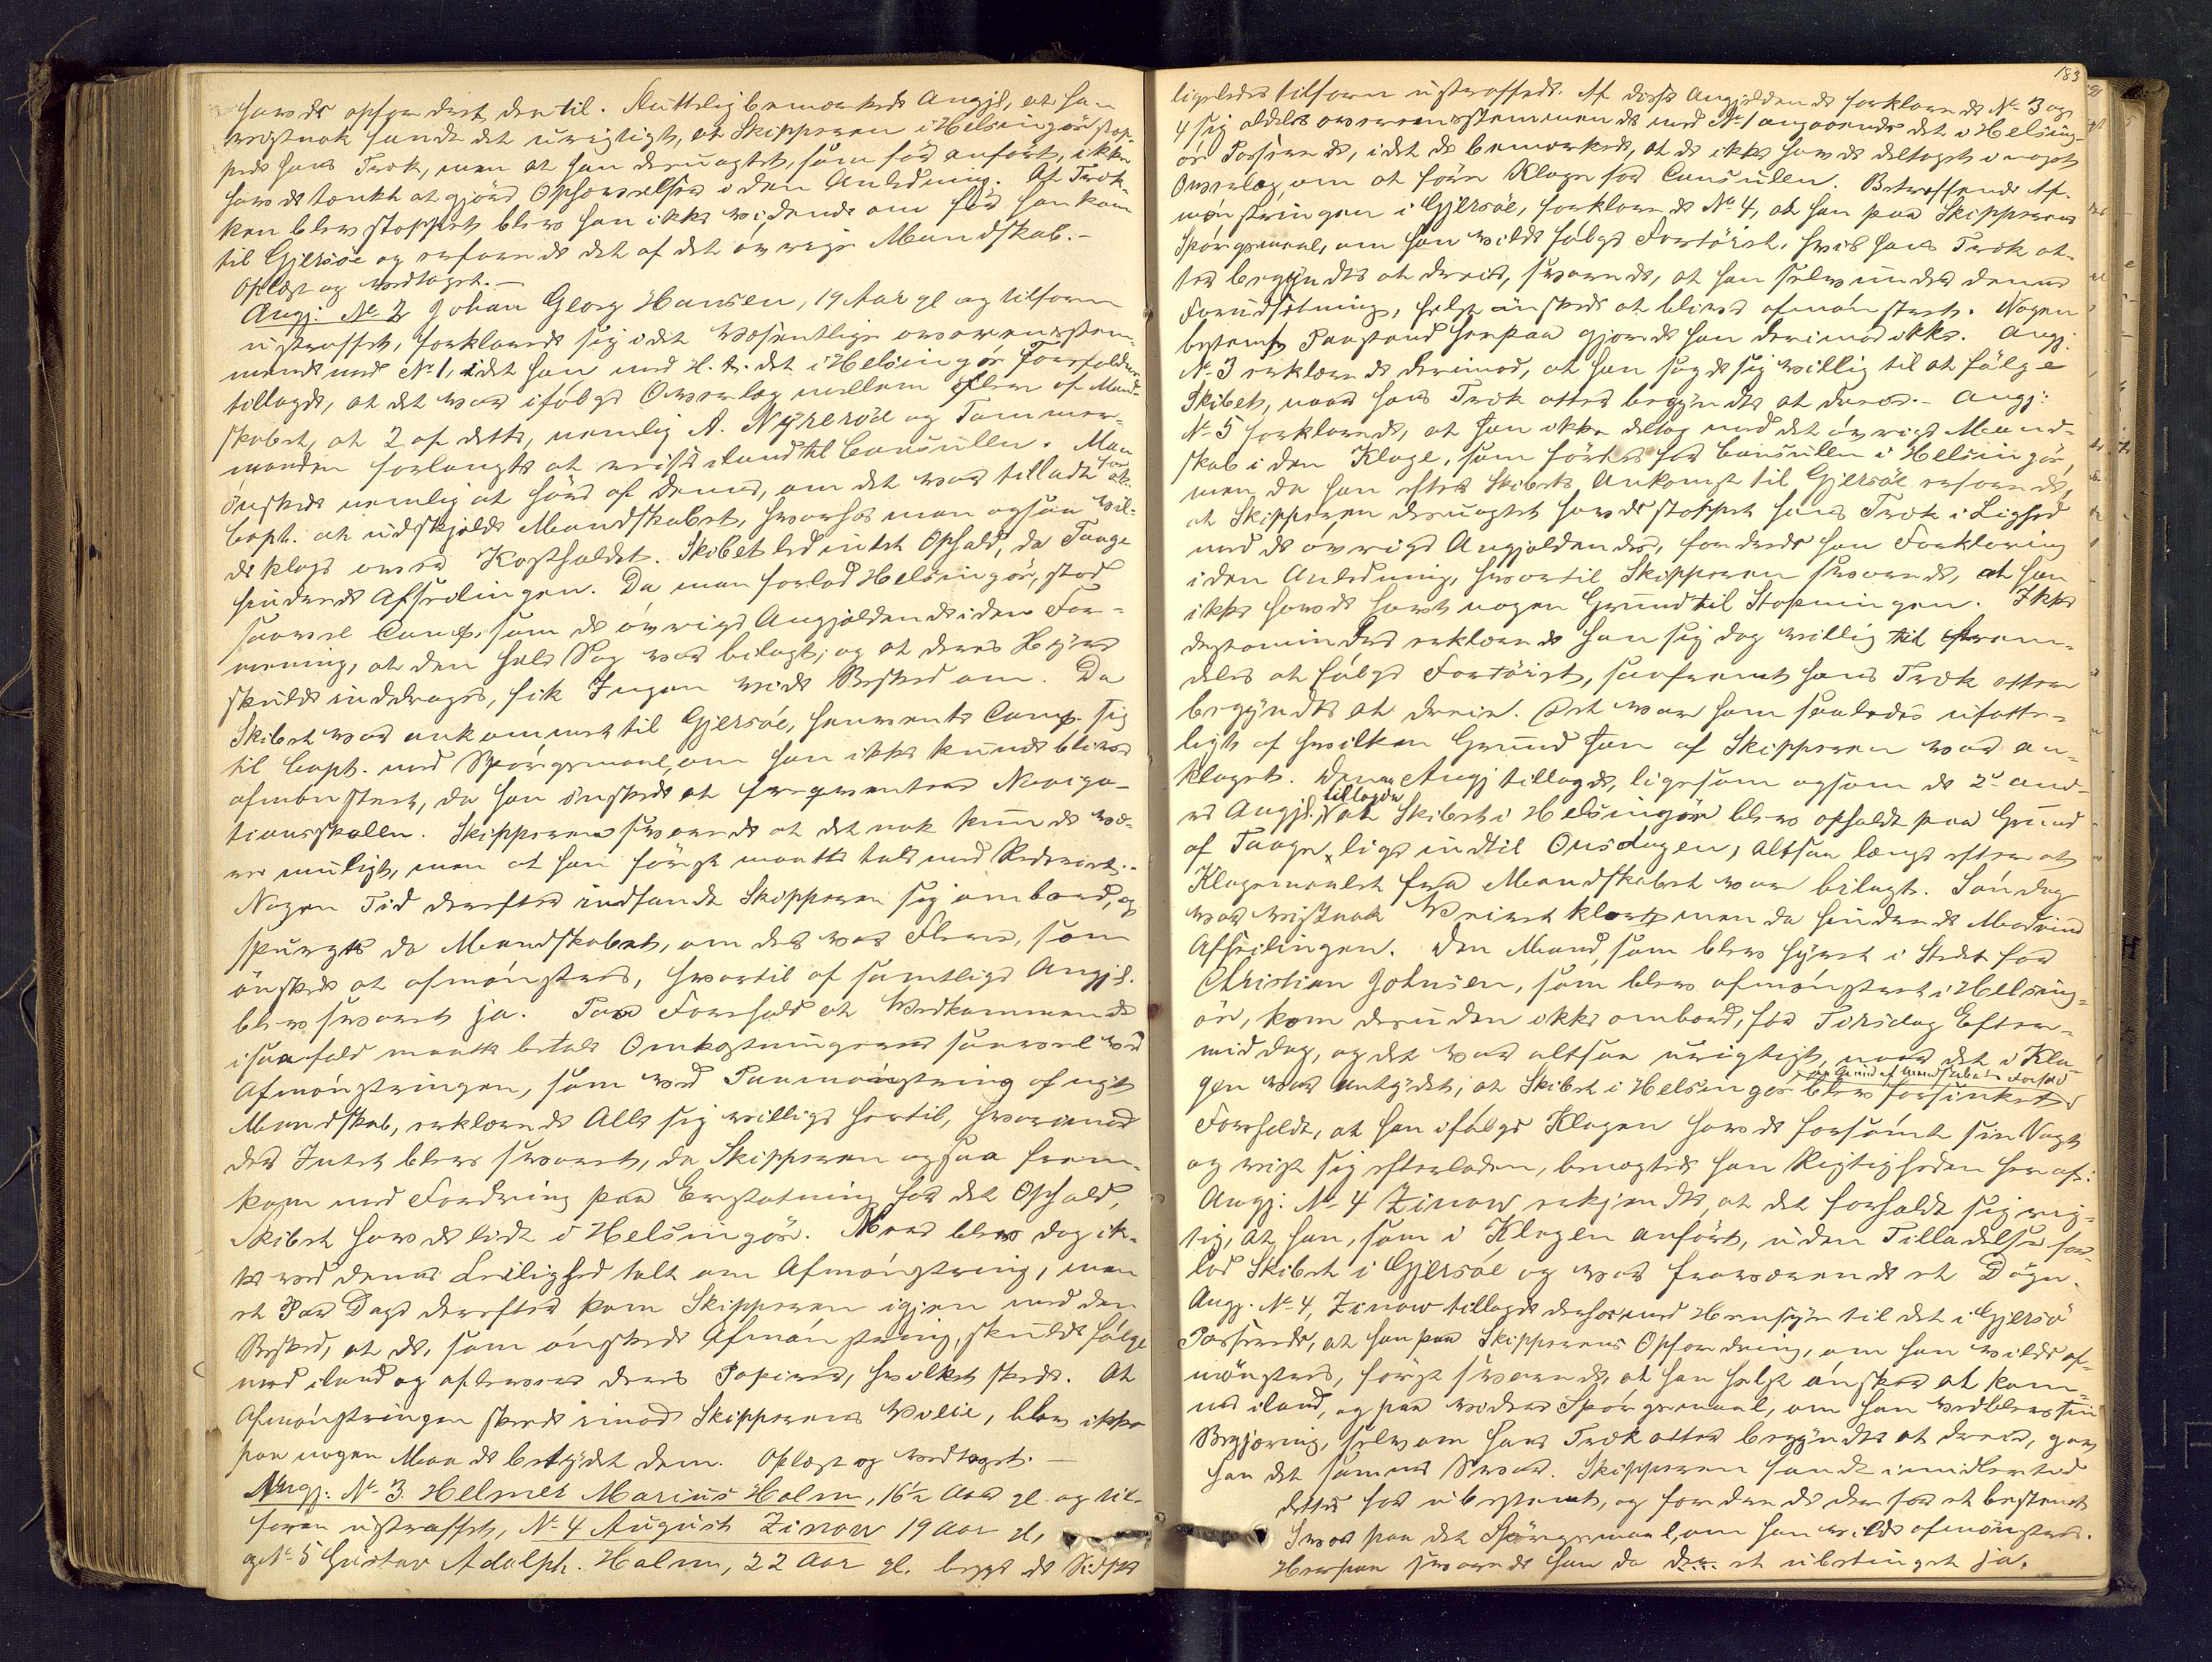 havde opfordret dertil. Slutteligbemærkede Angjl, at han
vistnok fandt det urigtigt, at Skipperen i Helsingör stop-
pede hans Træk, men at han desuagtet, som för anfört, ikke
havde tænkt at gjöre Ophævelser i den Anledning. At Træk-
ken blev stoppet blev han ikke vidende om för han kom
til Gjersöe og erfarede det af det övrige Mandskab.-
Oplæst og vedtaget.-
Angj: No 2 Johan Georg Hansen, 19 Aar gl og tilforn
ustraffet, forklarede sig i det Væsentlige overensstem-
mende med No 1, idet han med H. t. det i Helsingör Forefaldne
tillagde, at det var ifölge Overlæg mellem flere af Mand-
skabet, at 2 af dette, nemlig A. Nyreröe og Tømmer-
manden forlangte at reise iland til Consulen. Man
önskede nemlig at höre af denne, om det var tilladt for
Capt. at udskjelde Mandskabet, hvorhos man ogsaa vil-
de klage over Kostholdet. Skibet led intet Ophold, da Taage
hindrede Afseilingen. Da man forlod Helsingör, stod
saavel Comp. som de övrige Angjældende i den For-
mening, at den hele Sag var bilagt, og at deres Hyre
skulde inddrages, fik Ingen vide Besked om. Da
Skibet var ankommet til Gjersöe, henvendte Comp. sig
til Capt. med Spörgsmaal, om han ikke kunde blive
afmönstret, da han önskede at frequentere Naviga-
tionsskolen. Skipperen svarede at det nok kunde væ-
re muligt, men at han först maatte tale med Rederiet.-
Nogen Tid derefter indfandt Skipperen sig ombord, og
spurgte da Mandskabet, om der var Flere, som
önskede at afmönstres, hvortil af samtlige Angjl.
blev svaret ja. Paa Forehold at Vedkommende
isaafald maatte betale Omkostningerne saavel ved
Afmönstringen, som ved Paamönstring af nyt
Mandskab, erklærede Alle sig villige hertil, hvorimod
der Intet blev svaret, da Skipperen ogsaa frem-
kom med Fordring paa Erstatning for det Ophold,
Skibet havde lidt i Helsingör. Mere blev dog ik-
ke ved denne Leilighed talt om Afmönstring, men
et Par Dage derefter kom Skipperen igjen med den
Besked, at de, som önskede Afmönstring, skulde fölge
med iland og aflevere deres Papirer, hvilket skede. At
Afmönstringen skede imod Skipperens Villie, blev ikke
paa nogen Maade betydet dem. Oplæst og vedtaget.-
Angj: No 3. Helmer Marius Holm, 16½ Aar gl. og til-
foren ustraffet, No 4 August Zinow 19 Aar gl,
og No 5 Gustav Adolph. Holm, 22 Aar gl. begge de Sidste
183
ligeledes tilforn ustraffede. Af disse Angjældende forklarede No 3 og
4 sig aldeles overensstemmende med No 1 angaaende det i Helsing-
ör Passerede, idet de bemærkede, at de ikke havde deltaget i noget
Overlæg om at före Klage for Consulen. Betreffende Af-
mönstringen i Gjersöe, forklarede No 4, at han paa Skipperens
Spörgsmaal, om han vilde fölge Fartöiet, hvis hans Træk at-
ter begyndte at dreie, svarede, at han selv under denne
Forudsetning, helst önskede at blive afmönstret. Nogen
bestemt Paastand herpaa gjorde han derimod ikke. Angj:
No 3 erklærede derimod, at han sagde sig villig til at fölge
Skibet, naar hans Træk atter begyndte at dreie.- Angj:
No 5 forklarede, at han ikke deltog med det övrige Mand-
skab i den Klage, som förtes for Consulen i Helsingör,
men da han efter Skibets Ankomst til Gjersöe erfarede,
at Skipperen desuagtet havde stoppet hans Træk i Lighed
med de övrige Angjældendes, fordrede han Forklaring
i den Anledning, hvortil Skipperen svarede, at han
ikke havde havt nogen Grund til Stopningen. Ikke
destomindre erklærede han sig dog villig til frem-
deles at fölge Fartöiet, saafremt hans Træk atter
begyndte at dreie. Det var ham saaledes ufatte-
ligt af hvilken Grund han af Skipperen var an-
klaget. Denne Angj tillagde, ligesom ogsaa de 2de and-
re Angjl. tillagde at Skibet i Helsingör blev opholdt paa Grund
af Taage, lige indtil Onsdagen, altsaa længe efter at
Klagemaalet fra Mandskabet var bilagt. Söndag
var vistnok Veiret klart men da hindrede Modvind
Afseilingen. Den Mand, som blev hyret i Stedet for
Christian Johnsen, som blev afmönstret i Helsing-
ör, kom desuden ikke ombord, för Tirsdag Efter-
middag, og det var altsaa urigtigt, naar det i Kla-
gen var antydet, at Skibet i Helsingör paa Grund af Mandskabets Forhold blev forsinket
Foreholdt, at han ifölge Klagen havde forsömt sin Vagt
og vist sig efterladen, benægtede han Rigtigheden heraf:
Angj: No 4 Zinow erkjendte, at det forholdt sig rig-
tig, at han, som i Klagen anfört, uden Tilladelse for-
lod Skibet i Gjersöe og var fraværende et Dögn.
Angj. No 4, Zinow tillagde derhos med Hensyn til det i Gjersö
Passerede, at han paa Skipperens Opfordring, om han vilde af-
mönstres, först svarede, at han helst önskede at kom-
me iland, og paa videre Spörgsmaal, om han vedblev sin
Begjæring, selv om hans Træk atter begyndte at dreie, gav
han det samme Svar. Skipperen fandt imidlertid
dette for ubestemt, og fordrede derfor et bestemt
Svar paa det Spörgsmaal, om han vilde afmönstres.
Herpaa svarede han da et ubetinget ja.